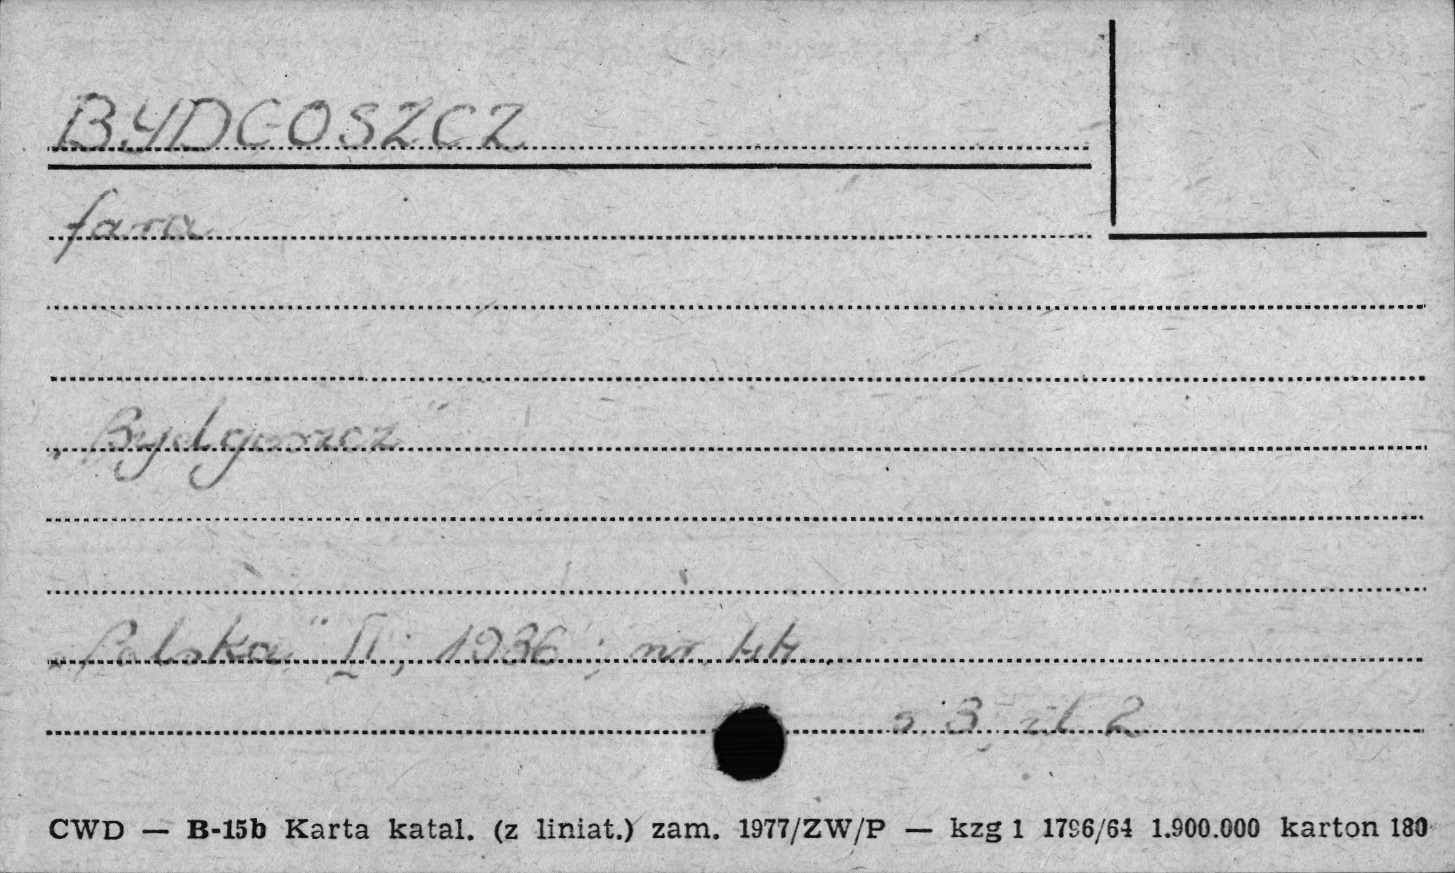 BYDGOSZCZ
fara
„Bydgoszcz"
„Polska" II; 1936; nr. 44.
s 3, il 2
CWD — B-15b Karta katal. (z liniat.) zam. 1977/ZW/P — kzg 1 1796/64 1.900.000 karton 180